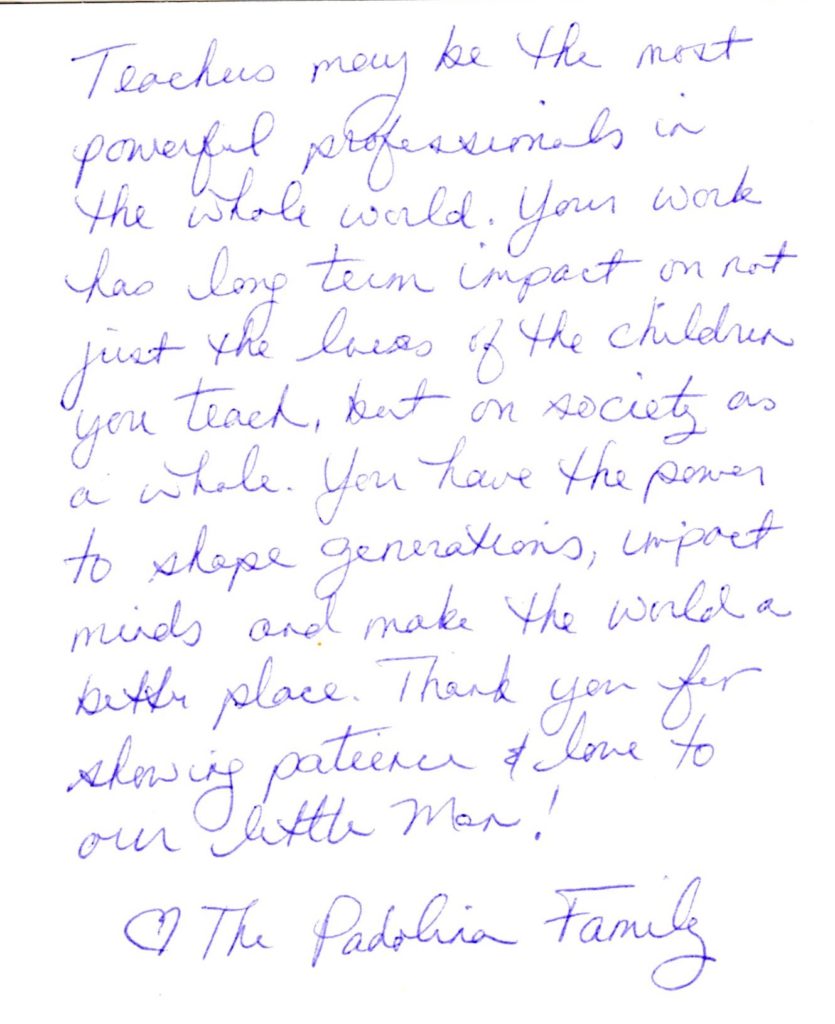 Teachers may be the most
powerful professionals in
the whole world. Your work
has long term impact on not
just the lives of the children
you teach, but on society as
a whole. You have the power
to shape generations, impact
minds and make the world a
better place. Thank you for
showing patience & love to
our little man!
♡ The Padolina Family